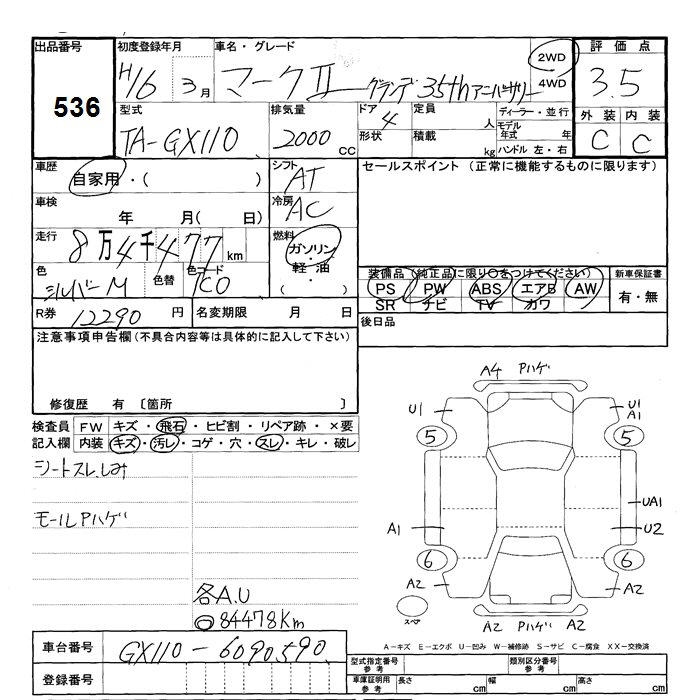 出品番号 初度登録年月 車名・グレード 評価点
536 H16 3月 マークⅡ グランデ 35thアニバーサリー 2WD 4WD 3.5
型式 排気量 ドア 定員 ディーラー・並行 外装 内装
TA-GX110 2000cc 4 人 モデル年式 年 C C
形状 積載 kg ハンドル 左・右
車歴 シフト セールスポイント (正常に機能するものに限ります)
自家用・( ) AT
車検 冷房
年 月( 日) AC
走行 燃料
8万4千477km ガソリン・軽油・( )
色 色替 色コード 装備品(純正品に限り○をつけてください) 新車保証書
シルバーM 1C0 PS PW ABS エアB AW 有・無
SR ナビ TV カワ
R券 12290円 名変期限 月 日 後日品
注意事項申告欄(不具合内容等は具体的に記入して下さい)
修復歴 有 〔箇所 〕
検査員 FW キズ・飛石・ヒビ割・リペア跡・×要
記入欄 内装 キズ・汚レ・コゲ・穴・スレ・キレ・破レ
シートスレ.しみ
モールPハゲ
各A.U
84478Km
A4 Pハゲ
U1 U1
A1
5 5
UA1
A1 U2
6 6
A2 A2
スペア
A2 Pハゲ A2
A-キズ E-エクボ U-凹み W-補修跡 S-サビ C-腐食 XX-交換済
車台番号 GX110-6090590
登録番号
型式指定番号 参考 類別区分番号 参考
車庫証明用 参考 長さ cm 幅 cm 高さ cm